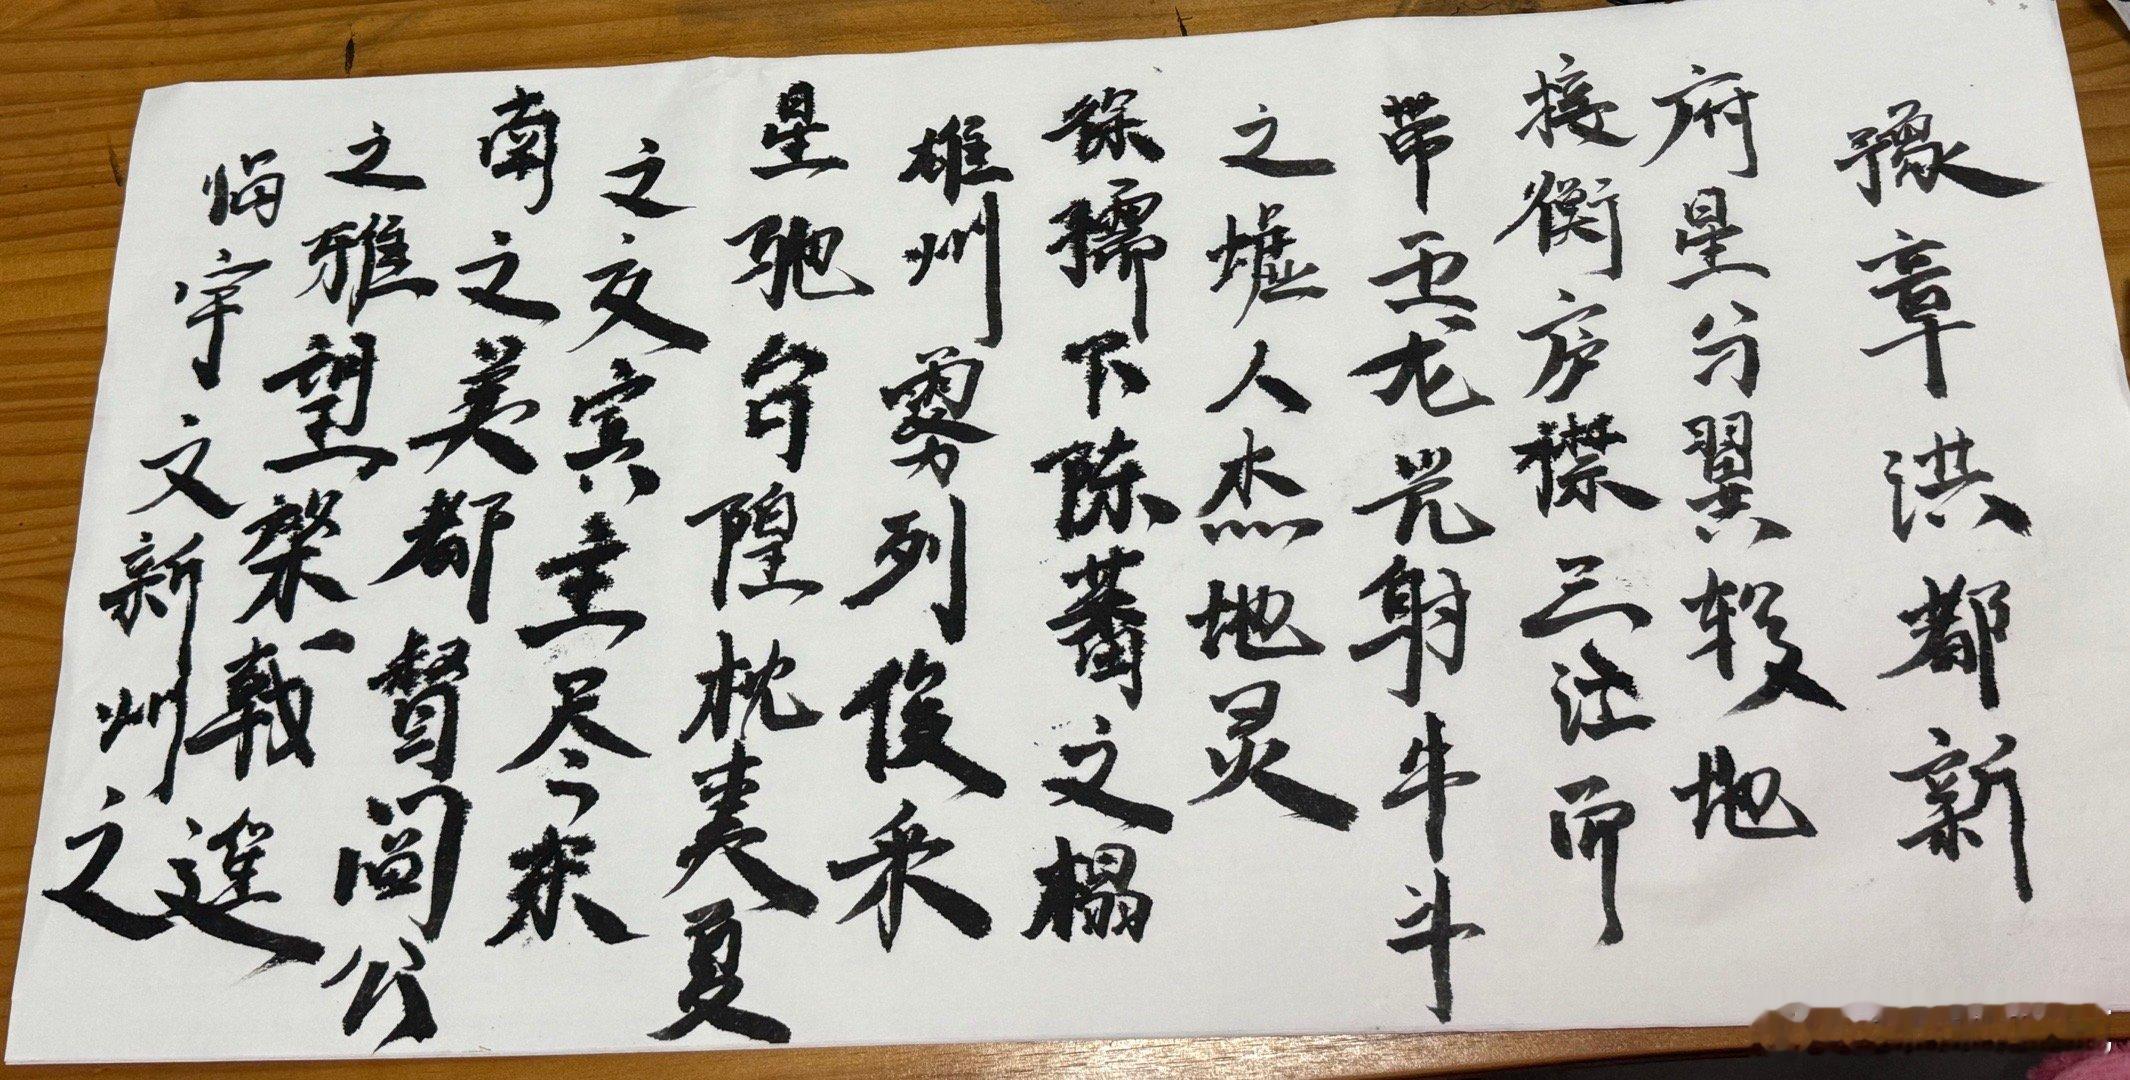 豫章洪都新
府星分翼轸地
接衡庐襟三江而
带五龙光射牛斗
之墟人杰地灵
徐孺下陈蕃之榻
雄州雾列俊采
星驰台隍枕夷夏
之交宾主尽东
南之美都督阎公
之雅望棨戟遥
临宇文新州之